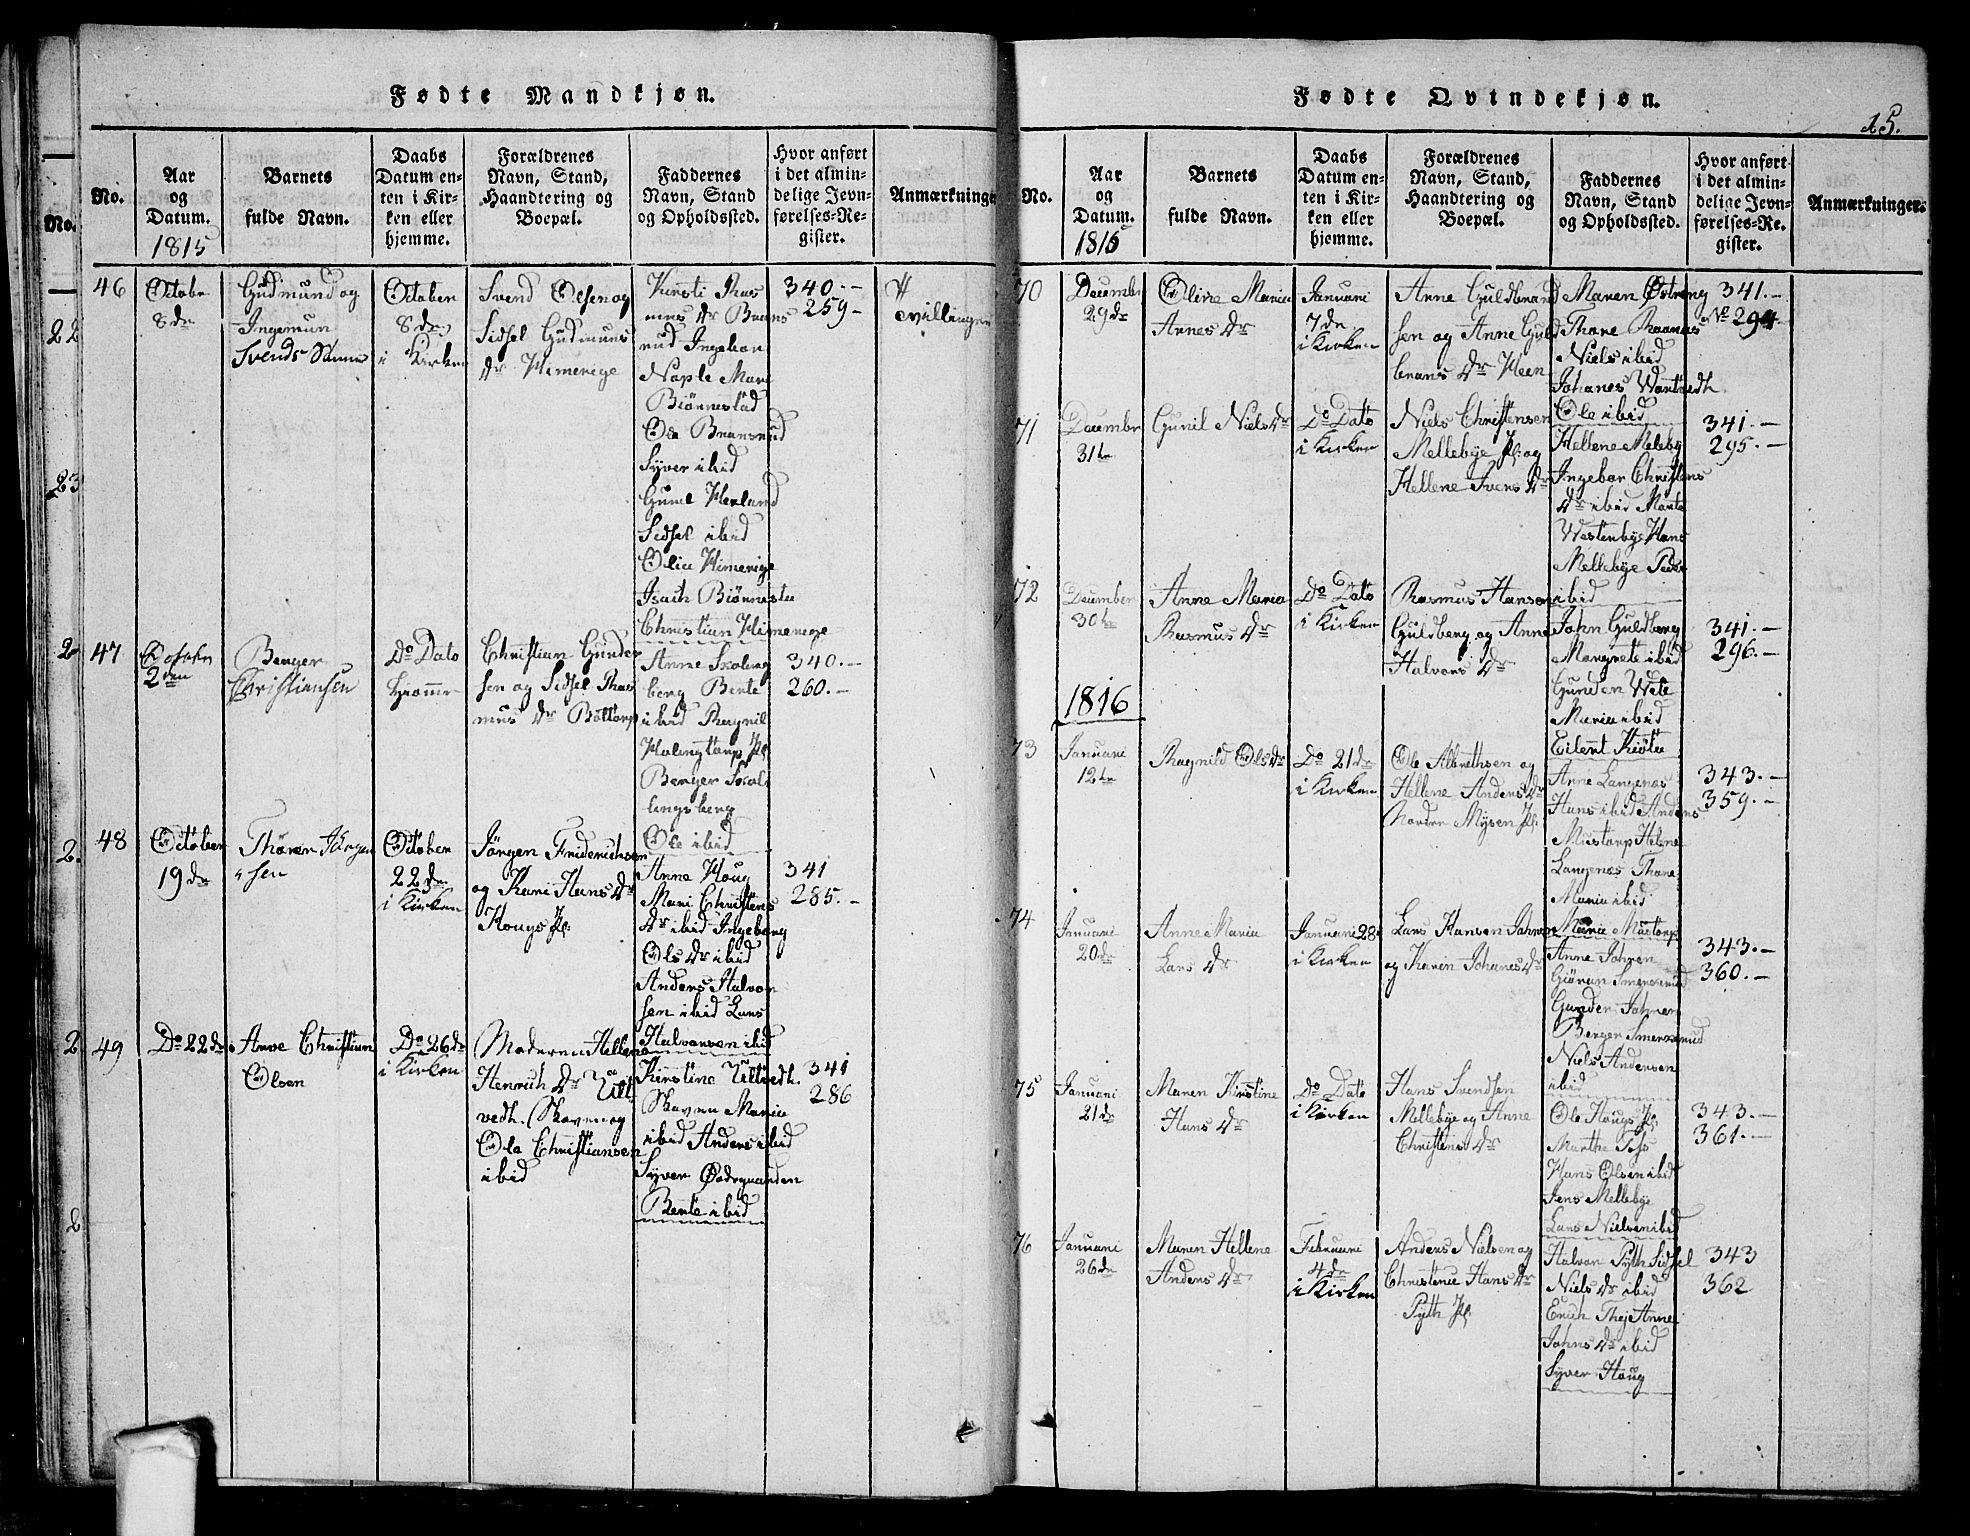 Fødte Mandkjøn.
No.
Aar
og
Datum.
1815
Barnets
fulde Navn.
Daabs
Datum en-
ten i Kir-
ken eller
hjemme.
Forældrenes
Navn, Stand,
Haandtering og
Boepæl.
Faddernes
Navn, Stand
og Opholdssted.
Hvor anført
i det almin-
delige Jevn-
førelses-Re-
gister.
Anmærkninge
46
Octobr
8de
Gudmund og
Ingemun
Svends Sönner
October
8de
i Kirken
Svend Olsen og
Sidsel Gudmuns
Dr Himerige
Kirsti Ras
mus Dr Bruns
rud Ingebor
Naple Mari
Biönnestad
Ole Brunsrud
Syver ibid
Gunil Herland
Sidsel ibid
Olia Himerige
Isach Biönnesta
Christian Himerige
340.-
259-
Tvillinger
47
2den
Berger
Christiansen
Do Dato
Hjemme
Christian Gunder
sen og Sidsel Ras
mus Dr Böttorp
Anne Skoleng
berg Bente
ibid Ragnil
Holmgtorp Pl.
Berger Skol
lingsberg
Ole ibid
340.-
260.-
48
October
19de
Thörer Jörgen
sen
October
22de
i Kirken
Jörgen Friderichsen
og Kari Hans Dr
Hougs Pl.
Anne Houg
Mari Christens
Dr ibid Ingeborg
Ols Dr ibid
Anders Halvor
sen ibid Lars
Halvorsen ibid
341
285.-
49
Do 22de
Arne Christian
Olsen
Do 26de
i Kirken
Moderen Hellene
Henrich Dr Ult
vedt. Skoven og
Ole Christiansen
ibid
Kirstine Ultvedt.
Skoven Maria
ibid Anders ibid
Syver Ödegaarden
Bente ibid
341
286
Fødte Qvindekjøn.
15.
No.
Aar
og
Datum.
1815
Barnets
fulde Navn.
Daabs
Datum en-
ten i Kir-
ken eller
hjemme.
Forældrenes
Navn, Stand,
Haandtering og
Boepæl.
Faddernes
Navn, Stand
og Opholdssted.
Hvor anført
i det almin-
delige Jevn-
førelses-Re-
gister.
Anmærkninger.
70
Decembr
29de
Oline Maria
Arnes Dr
Januari
7de
i Kirken
Arne Guldbrand
sen og Anne Guld
brans Dr Heen
Maren Östreng
Thore Raanaas
Niels ibid
Johanes Wortvedt
Ole ibid
341.-
No 294.
71
Decembr
31te
Gunil Niels Dr
Do Dato
i Kirken
Niels Christensen
Mellebye Pl. og
Hellene Ivers Dr
Hellene Meleby
Ingebor Christens
Dr ibid Marte
Westerbye Hans
Mellebye Peder
ibid
341.-
295.-
72
December
30te
Anne Maria
Rasmus Dr
Do Dato
i Kirken
Rasmus Hansen
Guldberg og Anne
Halvors Dr
John Guldberg
Margrete ibid
Gunder Wele
Maria ibid
Eilert Kiöta
341.-
296.-
1816
73
Januari
12te
Ragnild Ols Dr
Do 21de
i Kirken
Ole Albrethsen og
Hellene Anders Dr
Nordre Mysen Pl.
Anne Langenæs
Hans ibid Anders
Mustorp Helene
Langenæs Thore
Maria ibid
Maria Mustorp
343.-
359.-
74
Januari
20de
Anne Maria
Lars Dr
Januari 28
i Kirken
Lars Hansen Jahren
og Karin Johanes Dr
Anne Jahren
Giöran Smerserud
Gunder Jahren
Berger Smerserud
Niels Andersen
ibid
343.-
360.-
75
Januari
21de
Maren Kirstine
Hans Dr
Do Dato
i Kirken
Hans Svendsen
Mellebye og Anne
Christens Dr
Ole Hougs Pl.
Marthe
Hans Olsen ibid
Jens Mellebye
Lars Nielsen ibid
343.-
361.-
76
Januari
26de
Maren Hellene
Anders Dr
Februari
4de
i Kirken
Anders Nielsen og
Christine Hans Dr
Pyth Pl.
Halvor Pyth Sidsel
Niels Dr ibid
Erich Thej Anne
Johns Dr ibid
Syver Houg
343
362